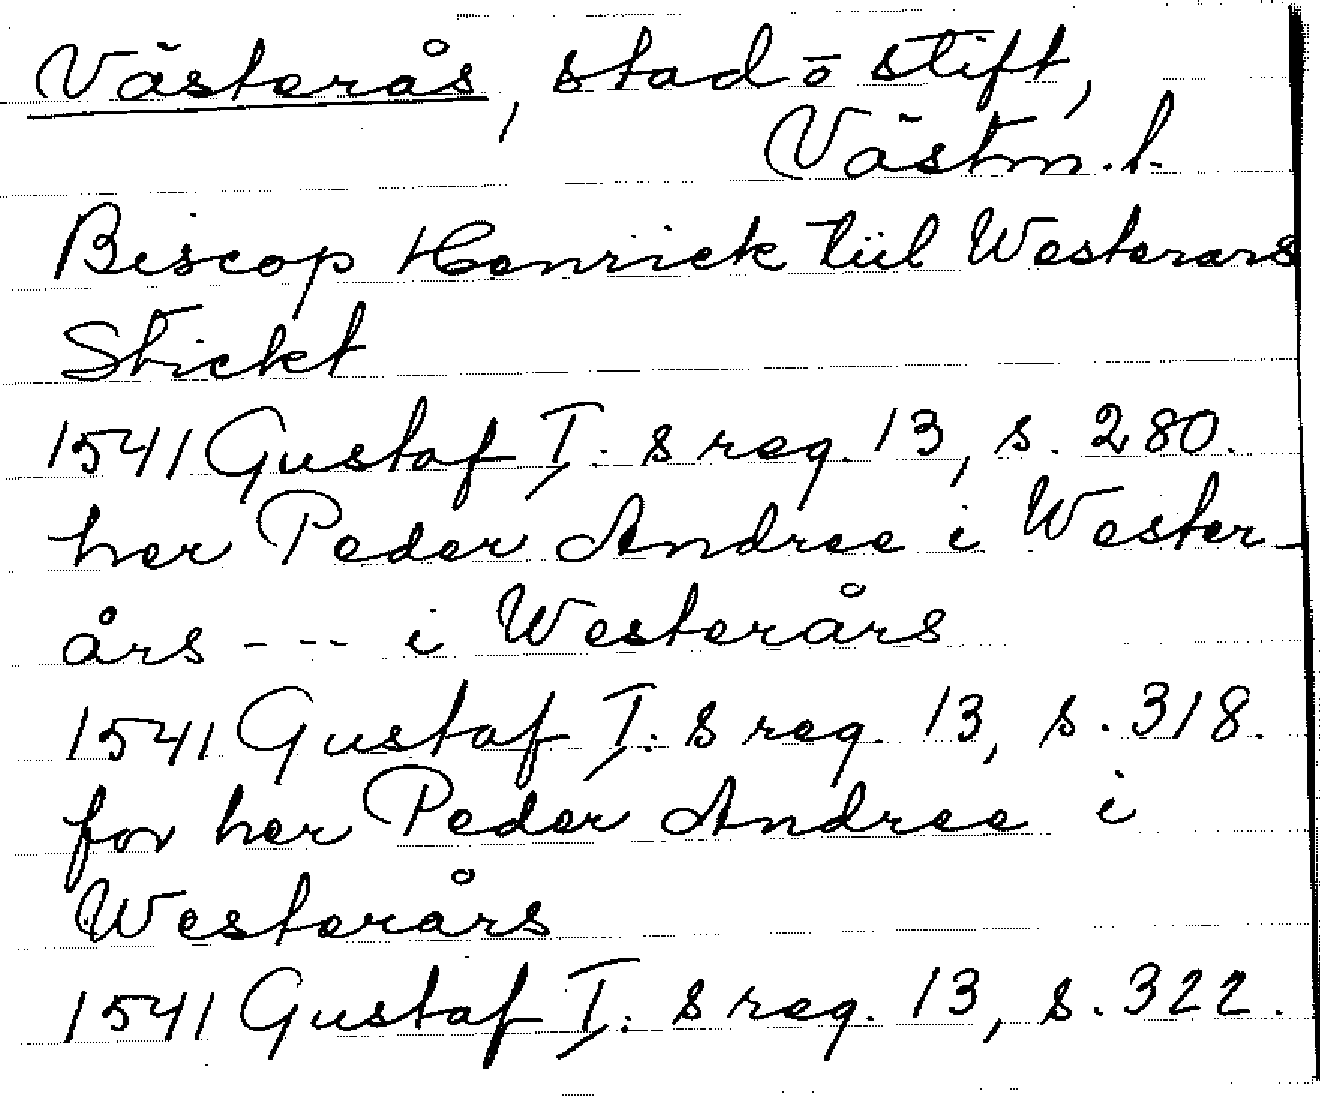 Västerås, stad o stift,
Västm.l.
Biscop Henrick tiil Westerars
Stickt
1541 Gustaf I:s reg. 13, s. 280.
her Peder Andree i Wester-
års - - - i Westerårs
1541 Gustaf I:s reg. 13, s. 318.
for her Peder Andree i
Westerårs
1541 Gustaf I:s reg. 13, s. 322.